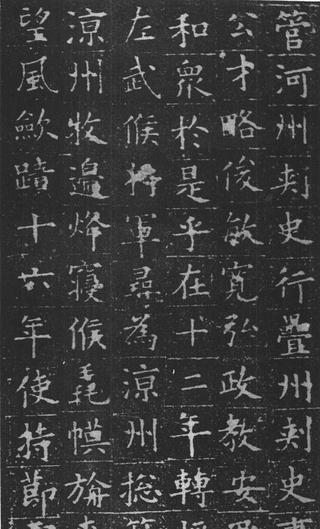 管河州刺史行疊州刺史
公才略俊敏寬弘政教安
和衆於是乎在十二年轉
左武候將軍尋為涼州捴
涼州牧邊烽寢候毳幙
望風歛蹟十六年使持節